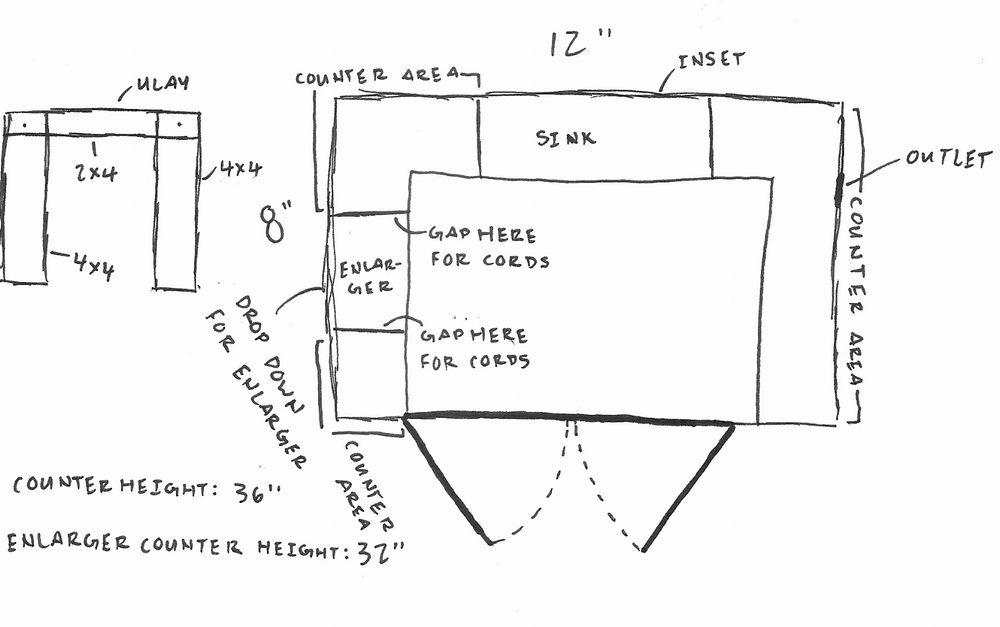 12"
COUNTER AREA
INSET
ULAY
SINK
OUTLET
2x4
4x4
4x4
8"
GAP HERE
FOR CORDS
ENLAR-
GER
GAP HERE
FOR CORDS
DROP DOWN
FOR ENLARGER
COUNTER AREA
COUNTER
AREA
COUNTER HEIGHT: 36"
ENLARGER COUNTER HEIGHT: 32"